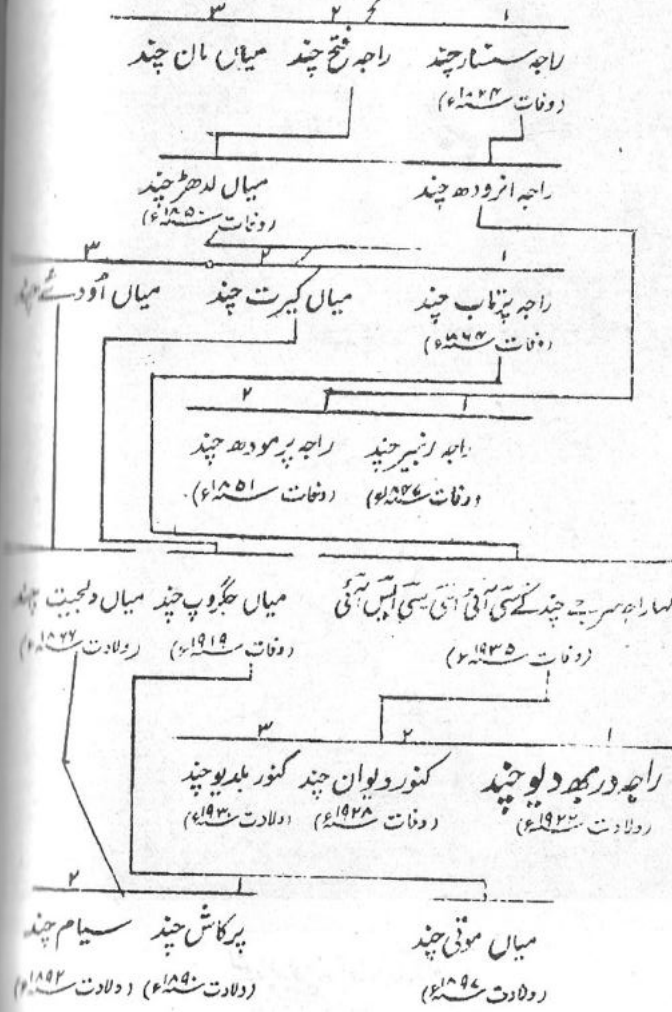 ۱ ۲ ۳
راجہ سنسار چند راجہ فتح چند میاں مان چند
(وفات ۱۸۲۴ء)
راجہ انرودھ چند میاں لدھڑ چند
(وفات ۱۸۵۰ء)
۱ ۲ ۳
راجہ پرتاب چند میاں کیرت چند میاں اُودے چند
(وفات ۱۸۶۴ء)
۱ ۲
راجہ رنبیر چند راجہ پرمودھ چند
(وفات ۱۸۴۷ء) (وفات ۱۸۵۱ء)
مہاراجہ سر جے چند کے سی آئی ای سی ایس آئی میاں جگروپ چند میاں دلجیت چند
(وفات ۱۹۳۵ء) (وفات ۱۹۱۹ء) (ولادت ۱۸۶۷ء)
۱ ۲ ۳
راجہ دربھ دیو چند کنور دیوان چند کنور بلدیو چند
(ولادت ۱۹۲۲ء) (وفات ۱۹۲۸ء) (ولادت ۱۹۳۰ء)
۲
میاں موتی چند پرکاش چند سیام چند
(ولادت ۱۸۹۷ء) (ولادت ۱۸۹۰ء) (ولادت ۱۸۹۲ء)